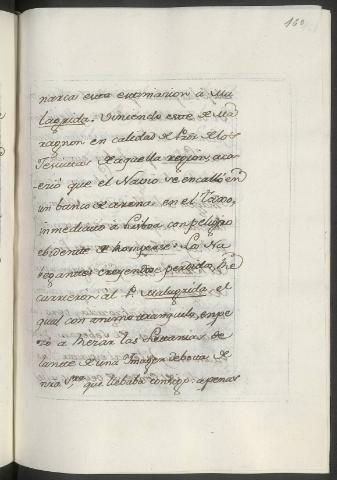 160
narcas esta estimacion à Ma
lagrida. Viniendo este de Ma
ragnon en calidad de Pror. de los
Jesuitas de aquella region, aca
eciò que el Navio se encallò en
un banco de arena en el Taxo,
inmediato à Lisboa, con peligro
ebidente de romperse. Los Na
vegantes creyendose perdidos, re
currieron al P. Malagrida, el
qual con animo tranquilo, empe
zò a rezar las Letanias de
lante de una Imagen devota de
nra Sra que llebaba consigo: apenas